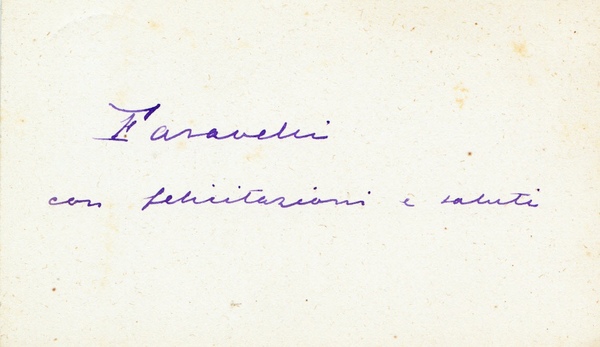 Faravelli
con felicitazioni e saluti